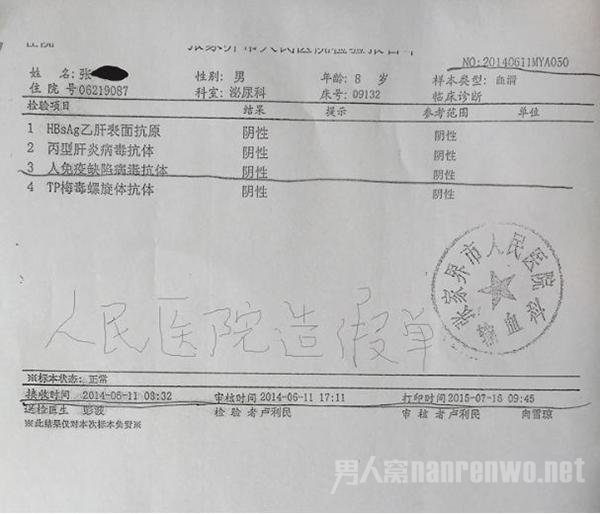 张家界市人民医院检验报告单
NO:20140611MYA050
姓 名:张 性别: 男 年龄: 8 岁 样本类型: 血清
住 院 号 06219087 科室: 泌尿科 床号: 09132 临床诊断
检验项目 结果 提示 参考范围 单位
1 HBsAg乙肝表面抗原 阴性 阴性
2 丙型肝炎病毒抗体 阴性 阴性
3 人免疫缺陷病毒抗体 阴性 阴性
4 TP梅毒螺旋体抗体 阴性 阴性
张家界市人民医院
人民医院造假单
※标本状态: 正常
接收时间 2014-06-11 08:32 审核时间 2014-06-11 17:11 打印时间 2015-07-16 09:45
送检医生 彭波 检 验 者 卢利民 审 核 者 向雪琼
※此结果仅对本次标本负责※
男人窝nanrenwo.net